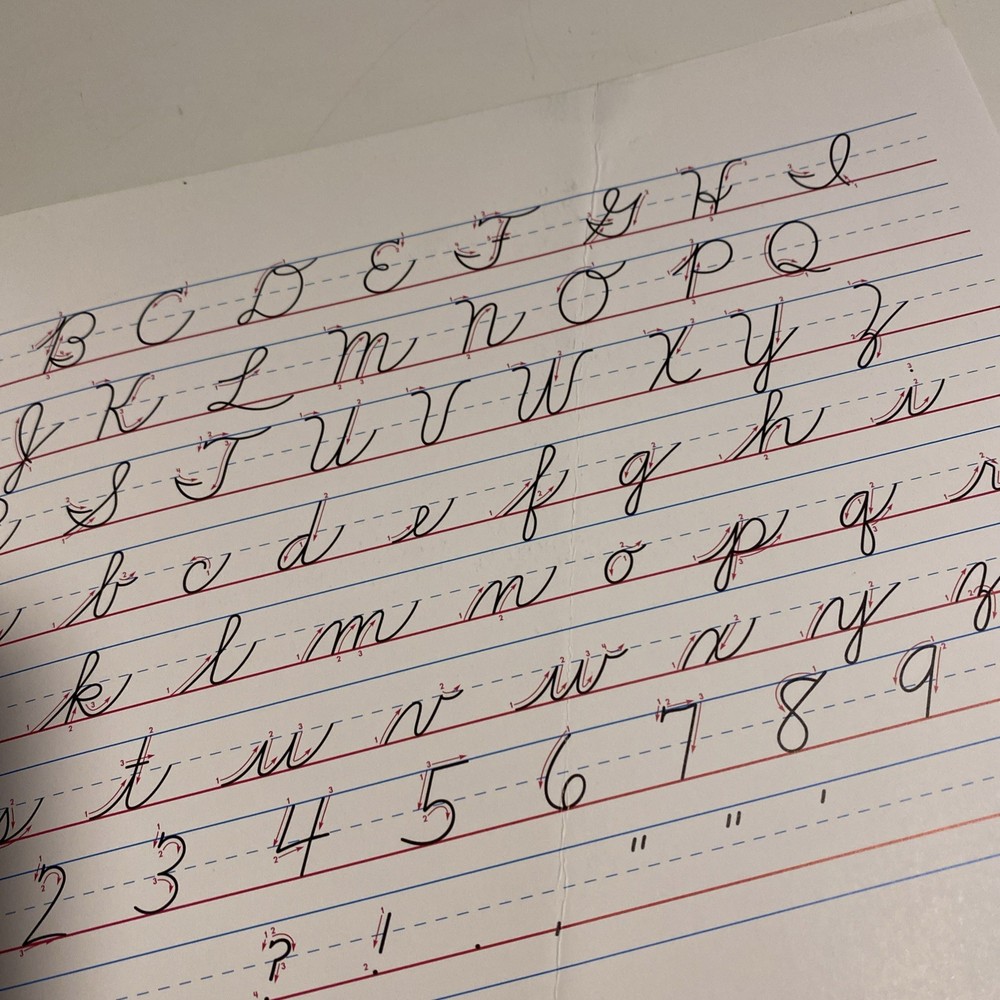 B C D E F G H I
J K L M N O P Q
S T U V W X Y Z
b c d e f g h i
k l m n o p q r
t u v w x y z
2 3 4 5 6 7 8 9
? ! . , " " '